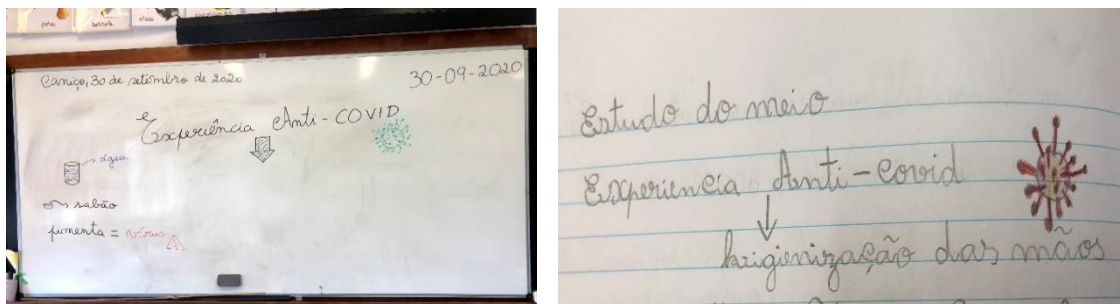 Caniço, 30 de setembro de 2020
30-09-2020
Experiência Anti-COVID
água
sabão
pimenta = vírus
Estudo do meio
Experiencia Anti-covid
higienização das mãos